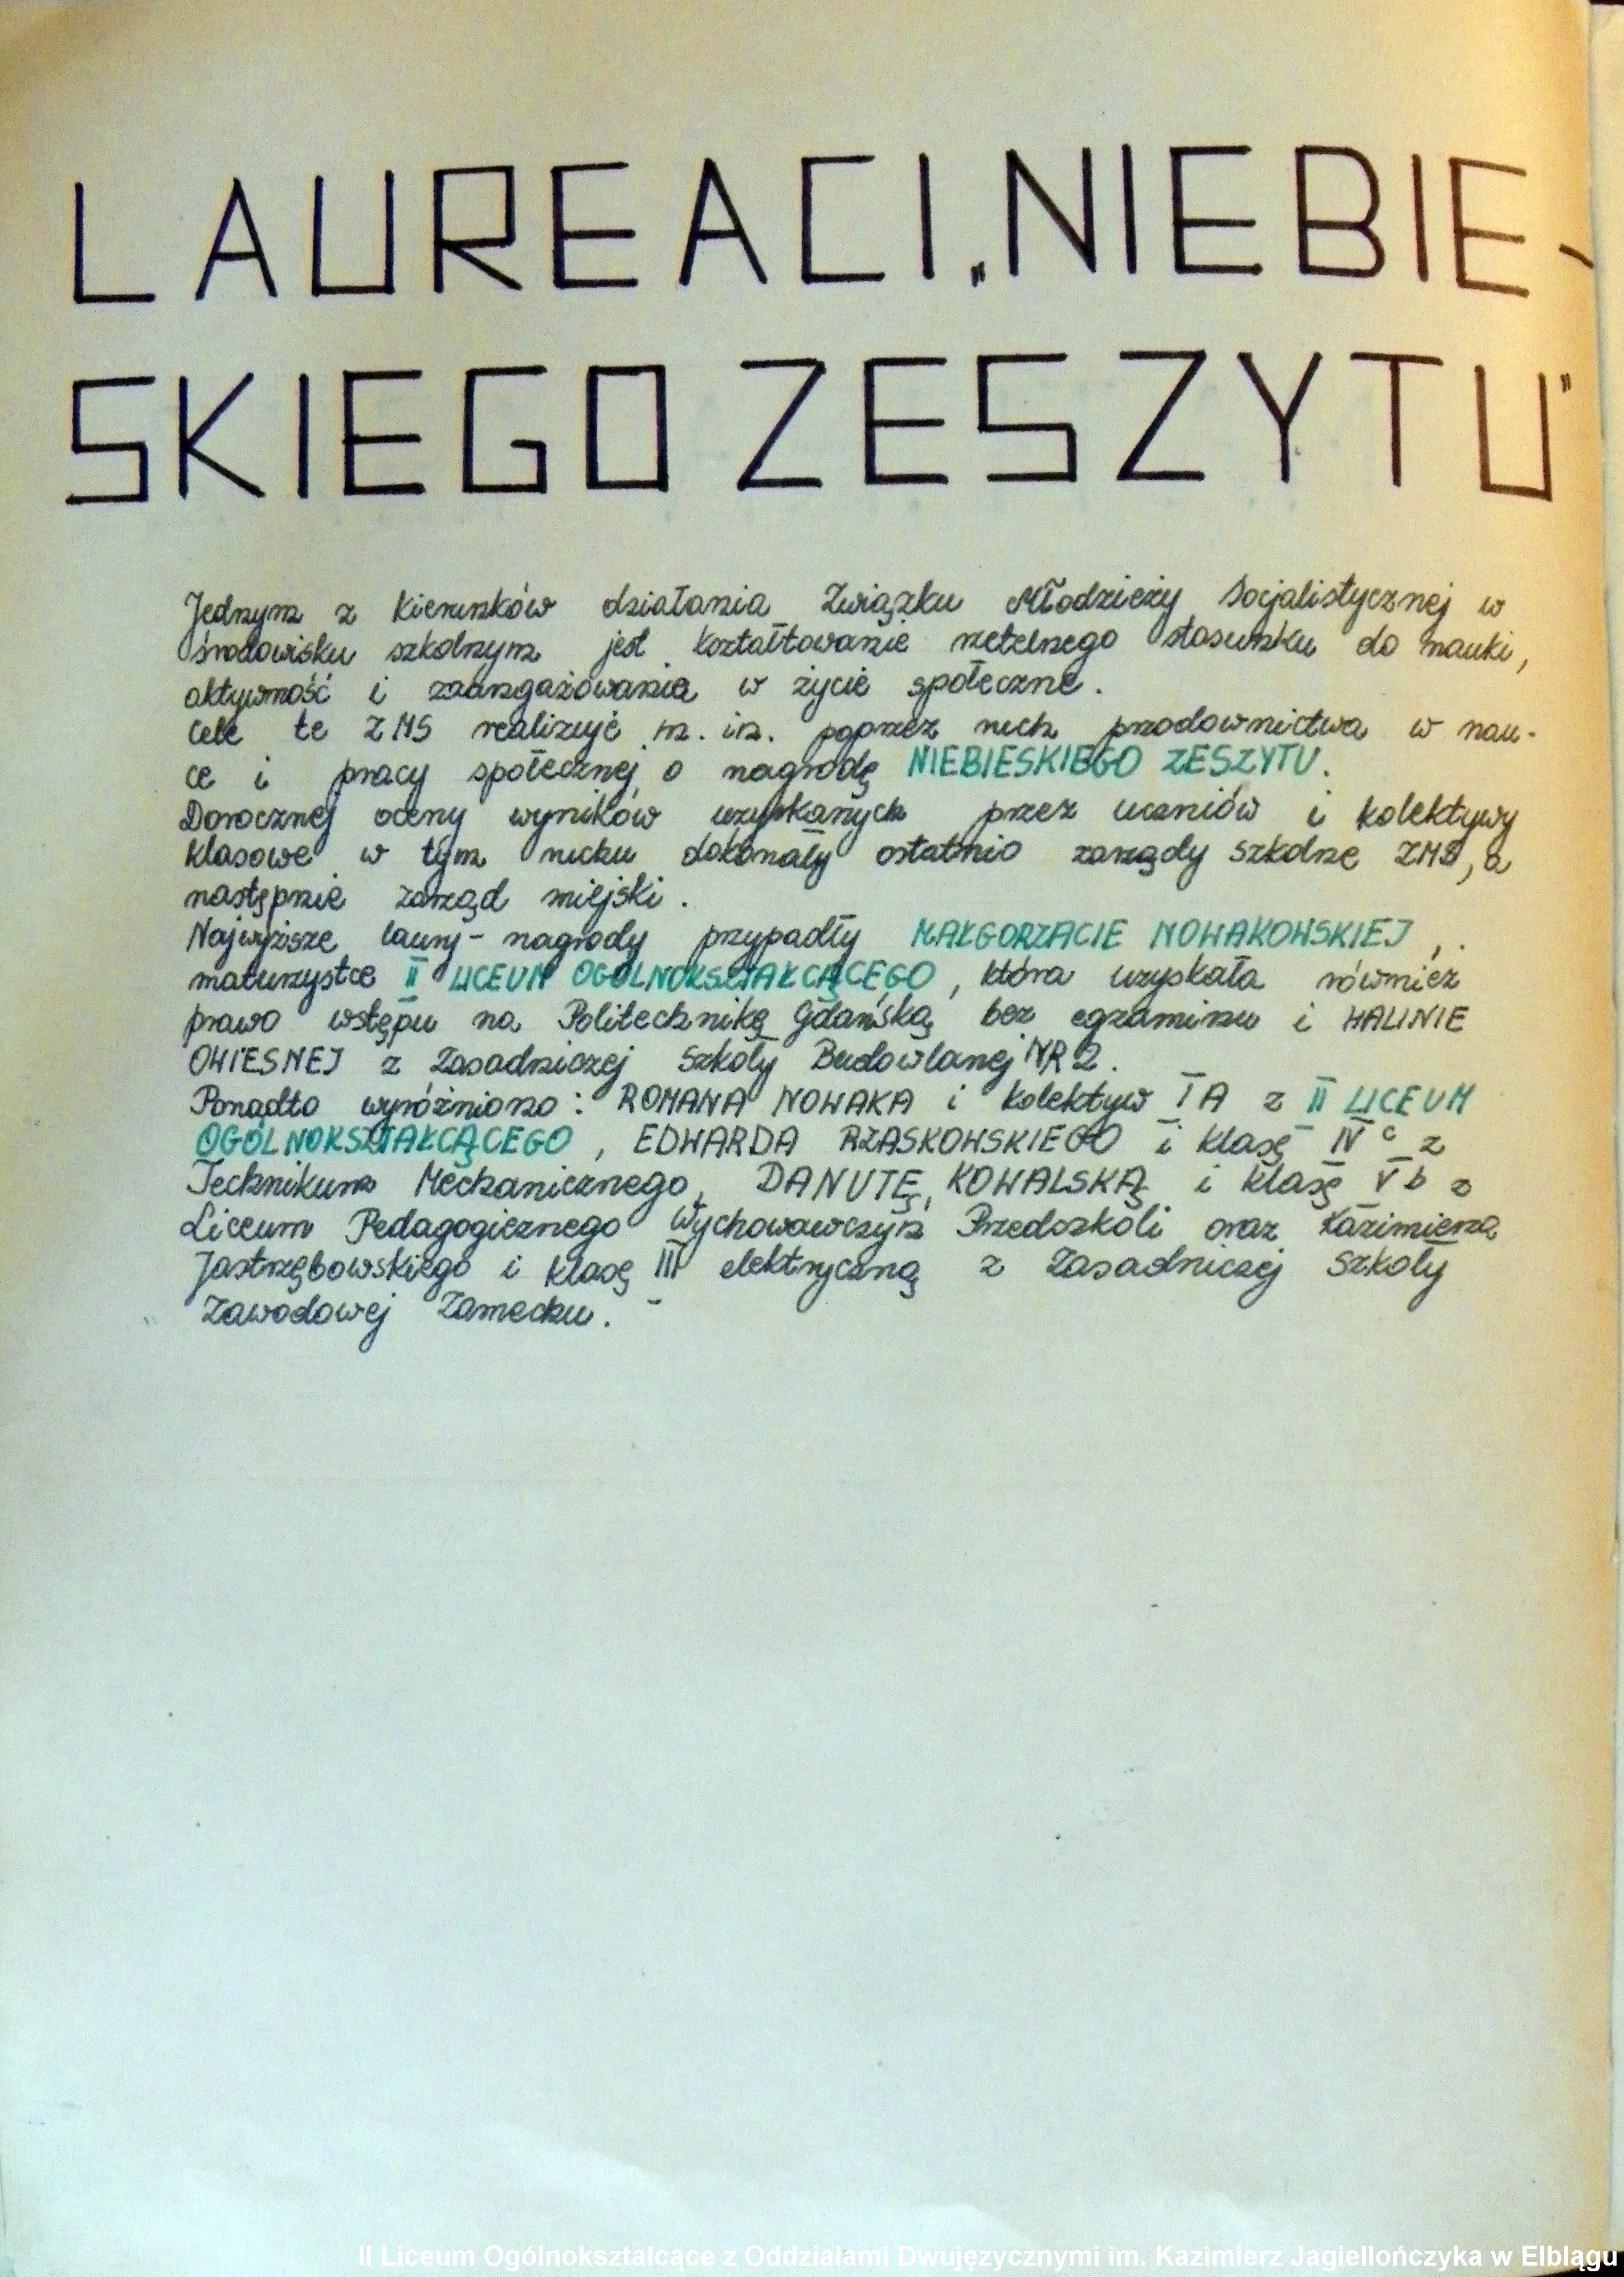 LAUREACI „NIEBIE-
SKIEGO ZESZYTU"
Jednym z kierunków działania Związku Młodzieży Socjalistycznej w
środowisku szkolnym jest kształtowanie rzetelnego stosunku do nauki,
aktywność i zaangażowania w życie społeczne.
Cele te ZMS realizuje m. in. poprzez ruch przodownictwa w nau-
ce i pracy społecznej o nagrodę NIEBIESKIEGO ZESZYTU.
Dorocznej oceny wyników uzyskanych przez uczniów i kolektywy
klasowe w tym ruchu dokonały ostatnio zarządy szkolne ZMS, a
następnie zarząd miejski.
Najwyższe laury - nagrody przypadły MAŁGORZACIE NOWAKOWSKIEJ,
maturzystce II LICEUM OGÓLNOKSZTAŁCĄCEGO, która uzyskała również
prawo wstępu na Politechnikę Gdańską bez egzaminu i HALINIE
OWIESNEJ z Zasadniczej Szkoły Budowlanej NR 2.
Ponadto wyróżniono: ROMANA NOWAKA i kolektyw I A z II LICEUM
OGÓLNOKSZTAŁCĄCEGO, EDWARDA RZASKOWSKIEGO i klasę IV c z
Technikum Mechanicznego, DANUTĘ KOWALSKĄ i klasę V b z
Liceum Pedagogicznego Wychowawczyń Przedszkoli oraz Kazimierza
Jastrzębowskiego i klasę III elektryczną z Zasadniczej Szkoły
Zawodowej Zamechu.
II Liceum Ogólnokształcące z Oddziałami Dwujęzycznymi im. Kazimierz Jagiellończyka w Elblągu